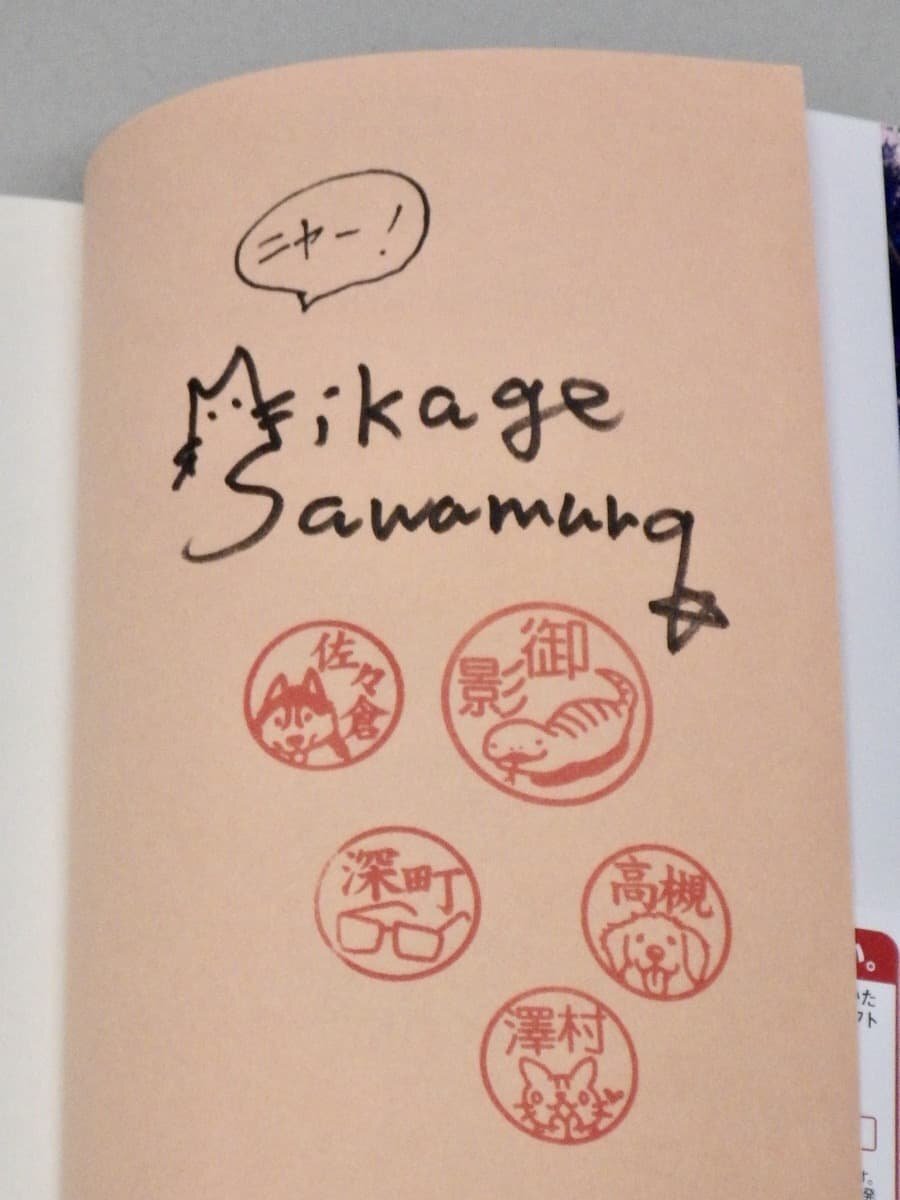 ニャー!
Mikage
Sawamura
佐々倉
御影
深町
高槻
澤村
い。
いた
フト